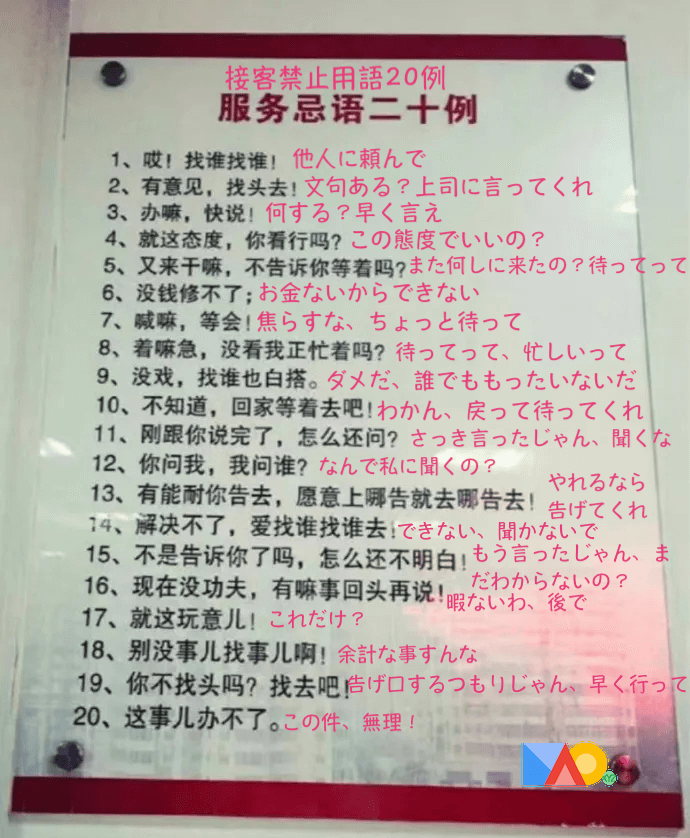 接客禁止用語20例
服务忌语二十例
1、哎！找谁找谁！ 他人に頼んで
2、有意见，找头去！ 文句ある？上司に言ってくれ
3、办嘛，快说！ 何する？早く言え
4、就这态度，你看行吗？ この態度でいいの？
5、又来干嘛，不告诉你等着吗？ また何しに来たの？待ってって
6、没钱修不了； お金ないからできない
7、喊嘛，等会！ 焦らすな、ちょっと待って
8、着嘛急，没看我正忙着吗？ 待ってって、忙しいって
9、没戏，找谁也白搭。 ダメだ、誰でももったいないだ
10、不知道，回家等着去吧！ わかん、戻って待ってくれ
11、刚跟你说完了，怎么还问？ さっき言ったじゃん、聞くな
12、你问我，我问谁？ なんで私に聞くの？
13、有能耐你告去，愿意上哪告就去哪告去！ やれるなら
告げてくれ
14、解决不了，爱找谁找谁去！ できない、聞かないで
15、不是告诉你了吗，怎么还不明白！ もう言ったじゃん、ま
だわからないの？
16、现在没功夫，有嘛事回头再说！ 暇ないわ、後で
17、就这玩意儿！ これだけ？
18、别没事儿找事儿啊！ 余計な事すんな
19、你不找头吗？找去吧！ 告げ口するつもりじゃん、早く行って
20、这事儿办不了。 この件、無理！